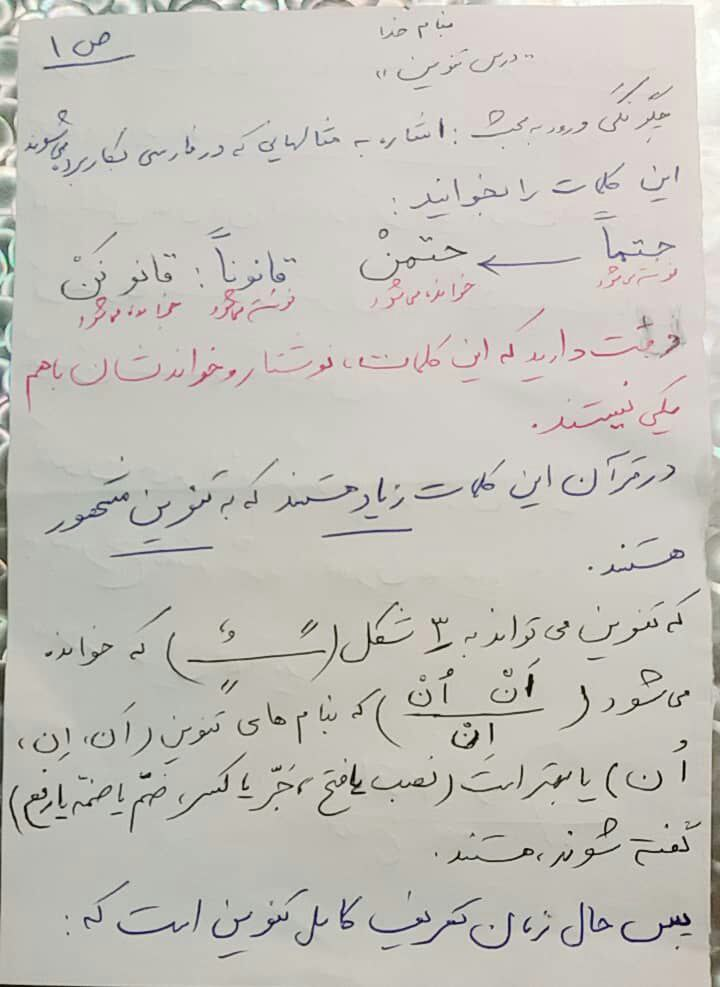 بنام خدا
ص ۱
"درس تنوین"
چگونگی ورود به بحث: اشاره به مثالهایی که در فارسی بکار برده می‌شوند
این کلمات را بخوانید:
حتماً ← حتمنْ قانوناً: قانونَنْ
نوشته می‌شود خوانده می‌شود نوشته می‌شود خوانده می‌شود
دقت دارید که این کلمات، نوشتار و خواندنشان باهم
یکی نیستند.
در قرآن این کلمات زیاد هستند که به تنوین مشهور
هستند.
که تنوین می تواند به ۳ شکل (ــًــٍــٌ) که خوانده
می شود (اَنْ اُنْ اِنْ) که بنام های تنوین (اَن، اِن،
اُن) یا بهتر است (نصب یا فتح، جَرّ یا کسر، ضمّ یا ضمّه یا رفع)
گفته شوند، هستند.
پس حال زمان تعریف کامل تنوین است که: